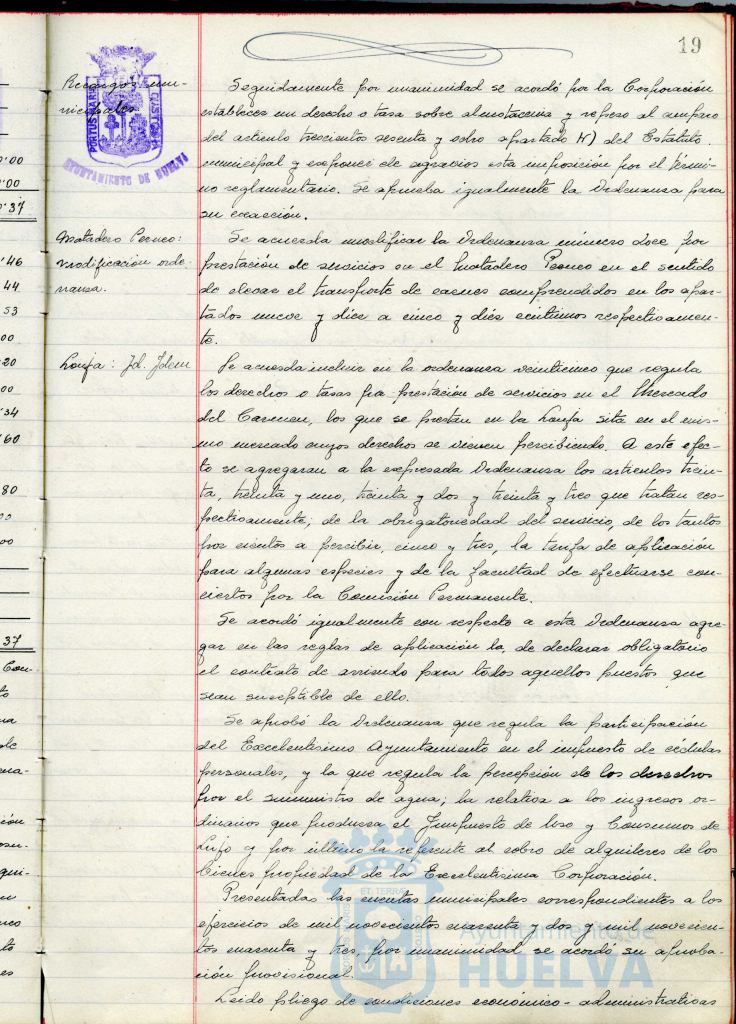 19
Recargos mu-
nicipales
PORTUS MARIS
ET TERRAE
CUSTODIA
AYUNTAMIENTO DE HUELVA
Seguidamente por unanimidad se acordó por la Corporación
establecer un derecho o tasa sobre almotacenia y repeso al amparo
del articulo trescientos sesenta y ocho apartado H) del Estatuto
municipal y exponer de agravios esta imposición por el térmi-
no reglamentario. Se aprueba igualmente la Ordenanza para
su exacción.
Matadero Perneo:
modificación orde-
nanza.
Se acuerda modificar la Ordenanza número doce por
prestación de servicios en el Matadero Perneo en el sentido
de elevar el transporte de carnes comprendidos en los apar-
tados nueve y diez a cinco y diez centimos respectivamen-
te.
Lonja: Id. Idem
Se acuerda incluir en la ordenanza veinticinco que regula
los derechos o tasas pra prestación de servicios en el Mercado
del Carmen, los que se prestan en la Lonja sita en el mis-
mo mercado cuyos derechos se vienen percibiendo. A este efec-
to se agregaran a la expresada Ordenanza los articulos trein-
ta, treinta y uno, treinta y dos y treinta y tres que tratan res-
pectivamente; de la obligatoriedad del servicio, de los tantos
por cientos a percibir, cinco y tres, la tarifa de aplicación
para algunas especies y de la facultad de efectuarse con-
ciertos por la Comisión Permanente.
Se acordó igualmente con respecto a esta Ordenanza agre-
gar en las reglas de aplicación la, de declarar obligatorio
el contrato de arriendo para todos aquellos puestos que
sean susceptible de ello.
Se aprobó la Ordenanza que regula la participación
del Excelentisimo Ayuntamiento en el impuesto de cédulas
personales, y la que regula la percepción de los derechos
por el suministro de agua; la relativa a los ingresos or-
dinarios que produzca el Impuesto de Uso y Consumos de
Lujo y por último la referente al cobro de alquileres de los
bienes propiedad de la Excelentisima Corporación.
Presentadas las cuentas municipales correspondientes a los
ejercicios de mil novecientos cuarenta y dos y mil novecien-
tos cuarenta y tres, por unanimidad se acordó su aproba-
ción provisional.
Leido pliego de condiciones económico-administrativas
Ayuntamiento de
HUELVA